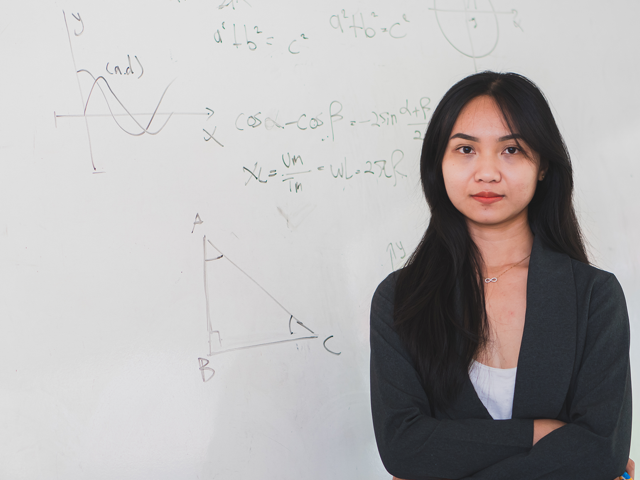 y
(n,d)
x
a²+b²=c²
a²+b²=c²
cos α-cos β=-2sin α+β/2
XL=Um/Im=WL=2πf
A
B
C
πy